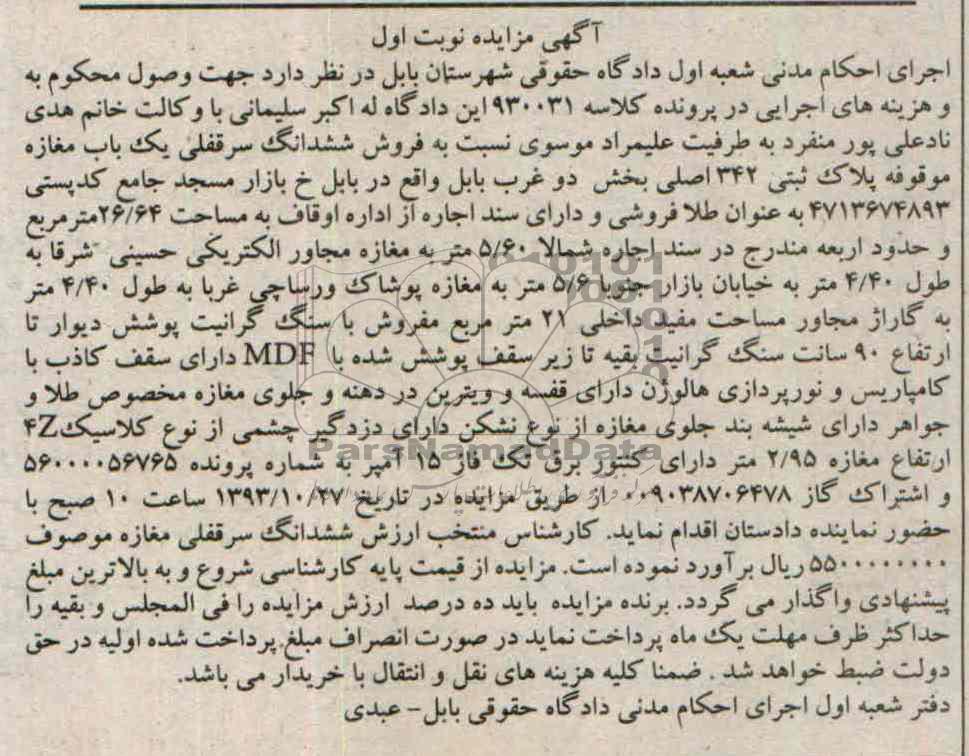 آگهی مزایده نوبت اول
اجرای احکام مدنی شعبه اول دادگاه حقوقی شهرستان بابل در نظر دارد جهت وصول محکوم به
و هزینه های اجرایی در پرونده کلاسه ۹۳۰۰۳۱ این دادگاه له اکبر سلیمانی با وکالت خانم هدی
نادعلی پور منفرد به طرفیت علیمراد موسوی نسبت به فروش ششدانگ سرقفلی یک باب مغازه
موقوفه پلاک ثبتی ۳۴۲ اصلی بخش دو غرب بابل واقع در بابل خ بازار مسجد جامع کدپستی
۴۷۱۳۶۷۴۸۹۳ به عنوان طلا فروشی و دارای سند اجاره از اداره اوقاف به مساحت ۲۶/۶۴مترمربع
و حدود اربعه مندرج در سند اجاره شمالا ۵/۶۰ متر به مغازه مجاور الکتریکی حسینی شرقا به
طول ۴/۴۰ متر به خیابان بازار جنوبا ۵/۶ متر به مغازه پوشاک ورساچی غربا به طول ۴/۴۰ متر
به گاراژ مجاور مساحت مفید داخلی ۲۱ متر مربع مفروش با سنگ گرانیت پوشش دیوار تا
ارتفاع ۹۰ سانت سنگ گرانیت بقیه تا زیر سقف پوشش شده با MDF دارای سقف کاذب با
کامپاریس و نورپردازی هالوژن دارای قفسه و ویترین در دهنه و جلوی مغازه مخصوص طلا و
جواهر دارای شیشه بند جلوی مغازه از نوع نشکن دارای دزدگیر چشمی از نوع کلاسیک۴Z
ارتفاع مغازه ۲/۹۵ متر دارای کنتور برق تک فاز ۱۵ آمپر به شماره پرونده ۵۶۰۰۰۰۵۶۷۶۵
و اشتراک گاز ۰۰۹۰۳۸۷۰۶۴۷۸ از طریق مزایده در تاریخ ۱۳۹۳/۱۰/۲۷ ساعت ۱۰ صبح با
حضور نماینده دادستان اقدام نماید. کارشناس منتخب ارزش ششدانگ سرقفلی مغازه موصوف
۵۵۰۰۰۰۰۰۰۰ ریال برآورد نموده است. مزایده از قیمت پایه کارشناسی شروع و به بالاترین مبلغ
پیشنهادی واگذار می گردد. برنده مزایده باید ده درصد ارزش مزایده را فی المجلس و بقیه را
حداکثر ظرف مهلت یک ماه پرداخت نماید در صورت انصراف مبلغ پرداخت شده اولیه در حق
دولت ضبط خواهد شد . ضمنا کلیه هزینه های نقل و انتقال با خریدار می باشد.
دفتر شعبه اول اجرای احکام مدنی دادگاه حقوقی بابل- عبدی
ParsNamadData